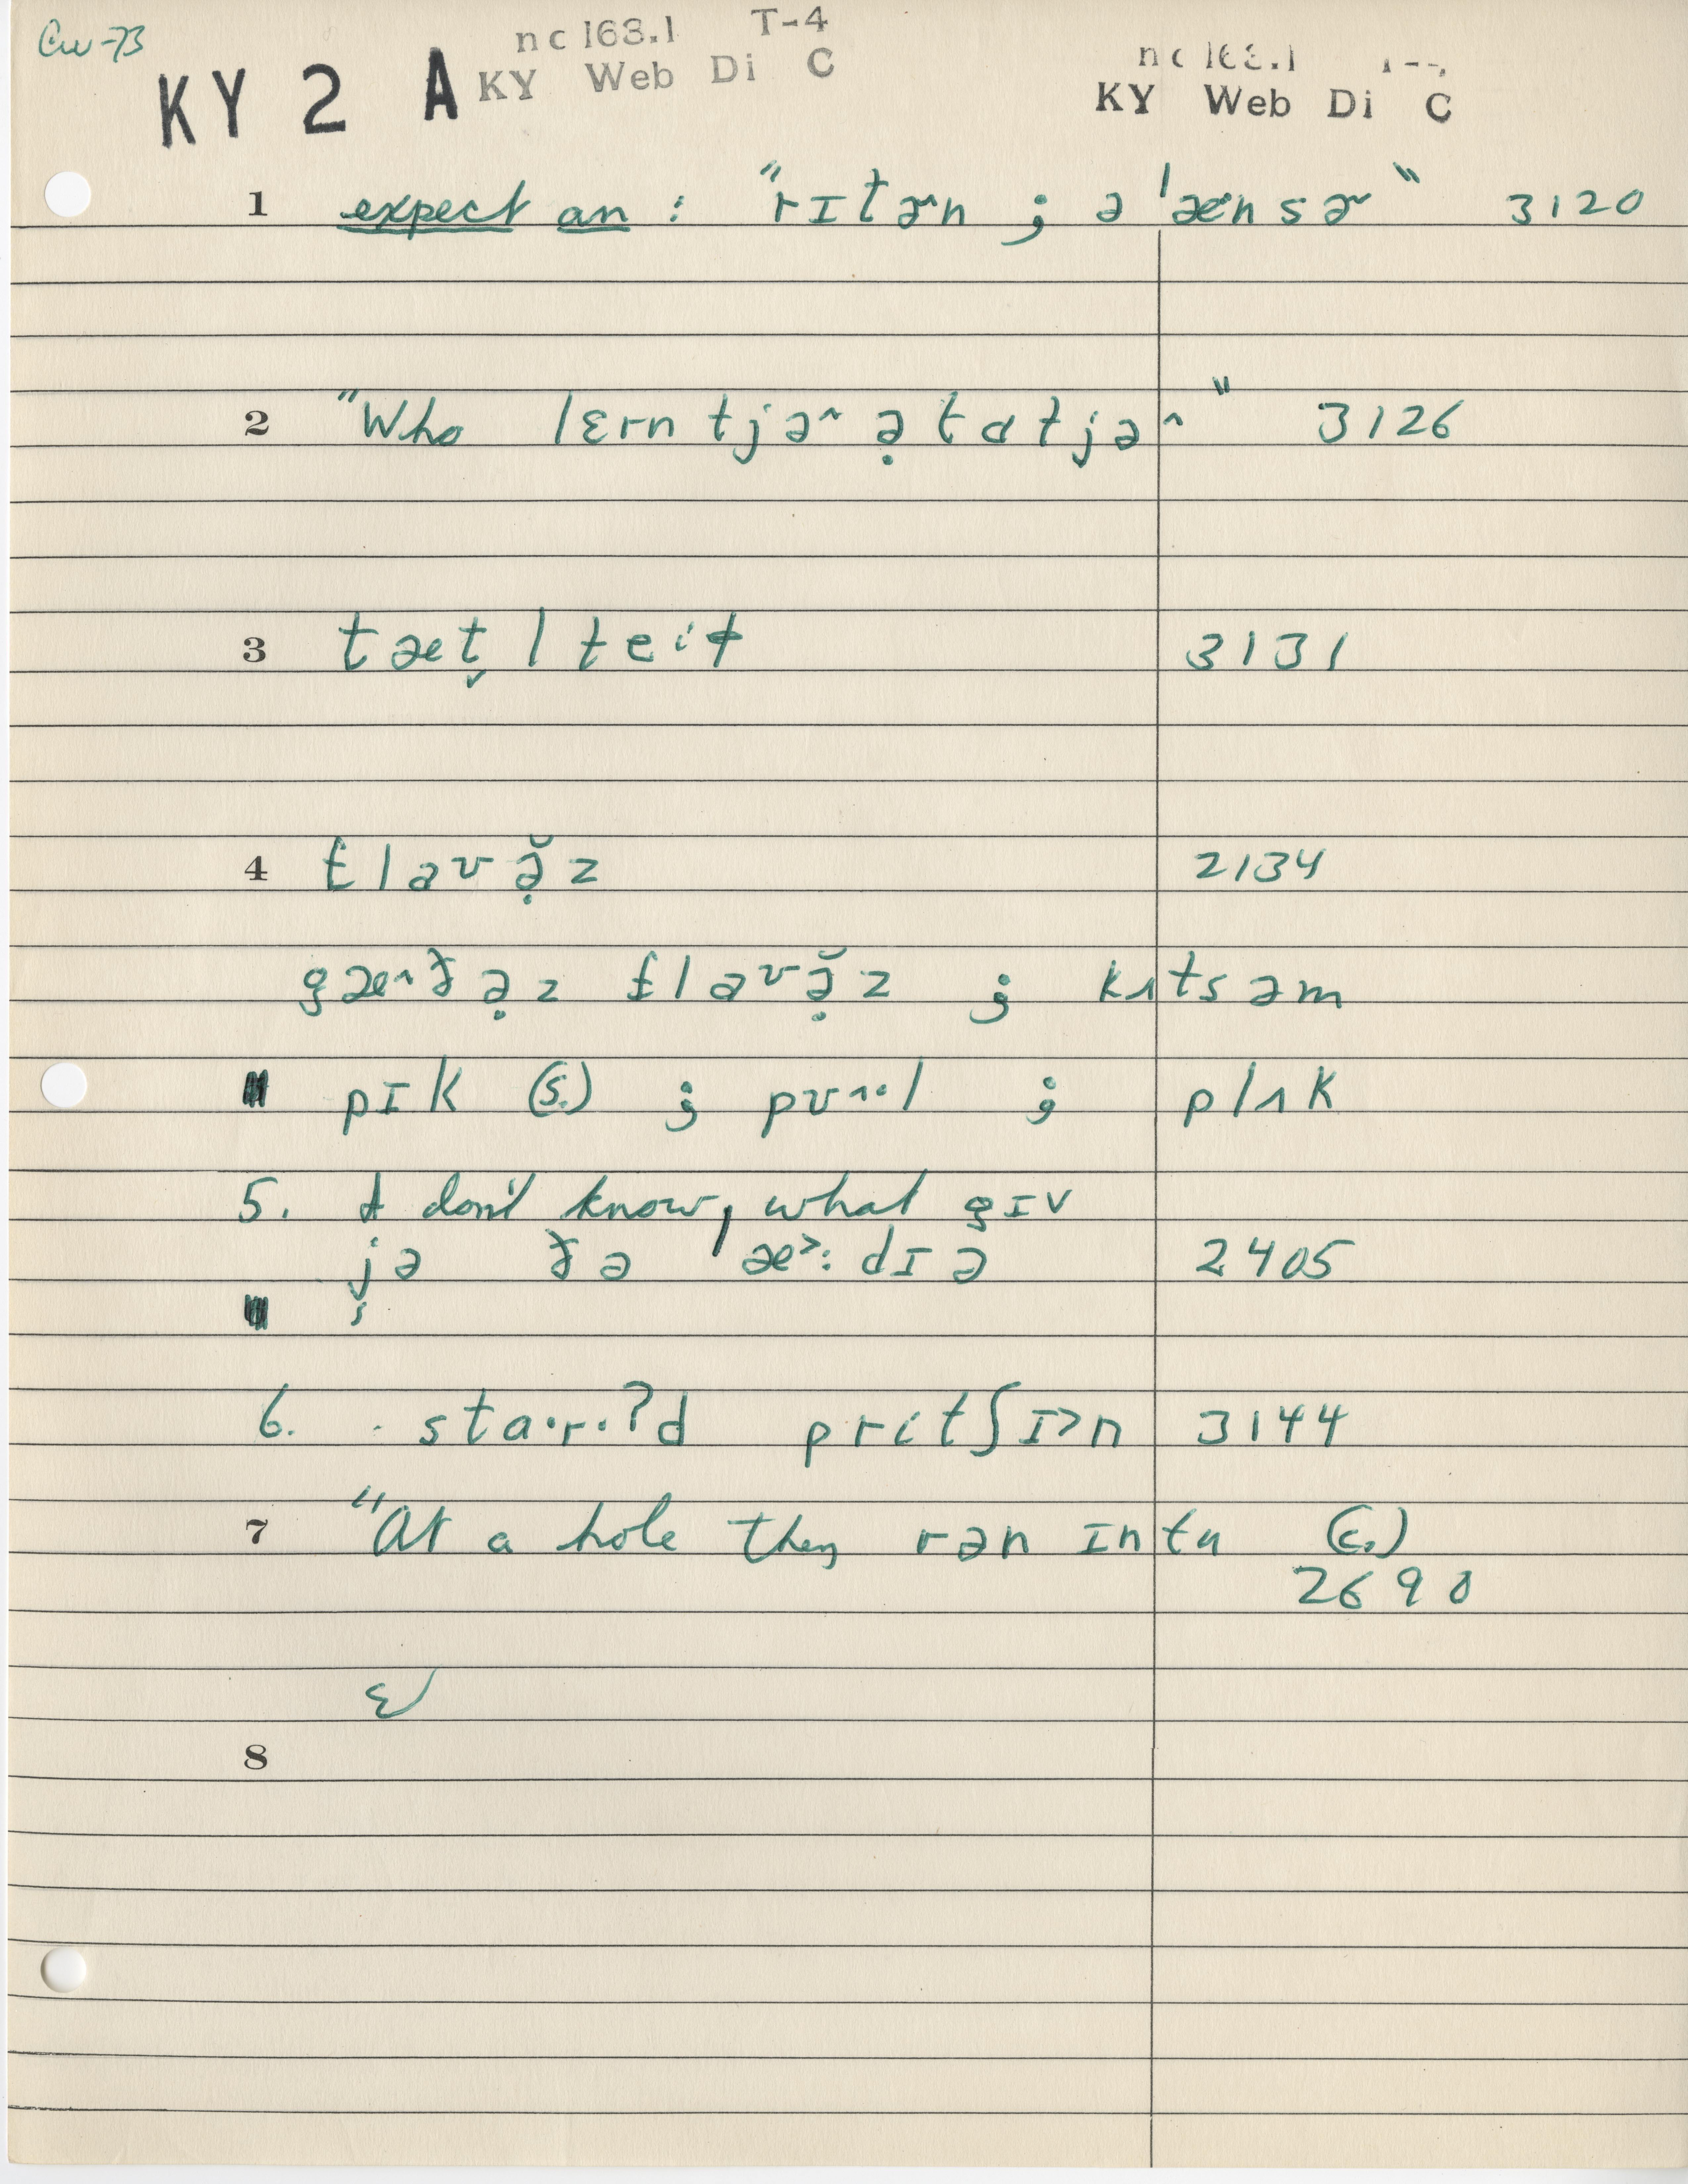 Cw-73
nc 163.1 T-4
KY 2 A KY Web Di C
KY Web Di C
1 expect an : "rɪtɚn ; ə'ænsɚ" 3120
2 "Who lɛrntjə^ ə̣tatjə^" 3126
3 tæt̬ | teit 3131
4 flavə̣̆z 2134
gæ^ðə̣z flavə̣̆z ; kʌtsəm
pɪk (s.) ; pʊ^·l ; plʌk
5. I don't know, what gɪv
jə ðə 'æ>: dɪə 2405
6. · sta·r·?d pritʃɪ>n 3144
7 "At a hole they rən ɪntu (c.)
2690
ɛ/
8